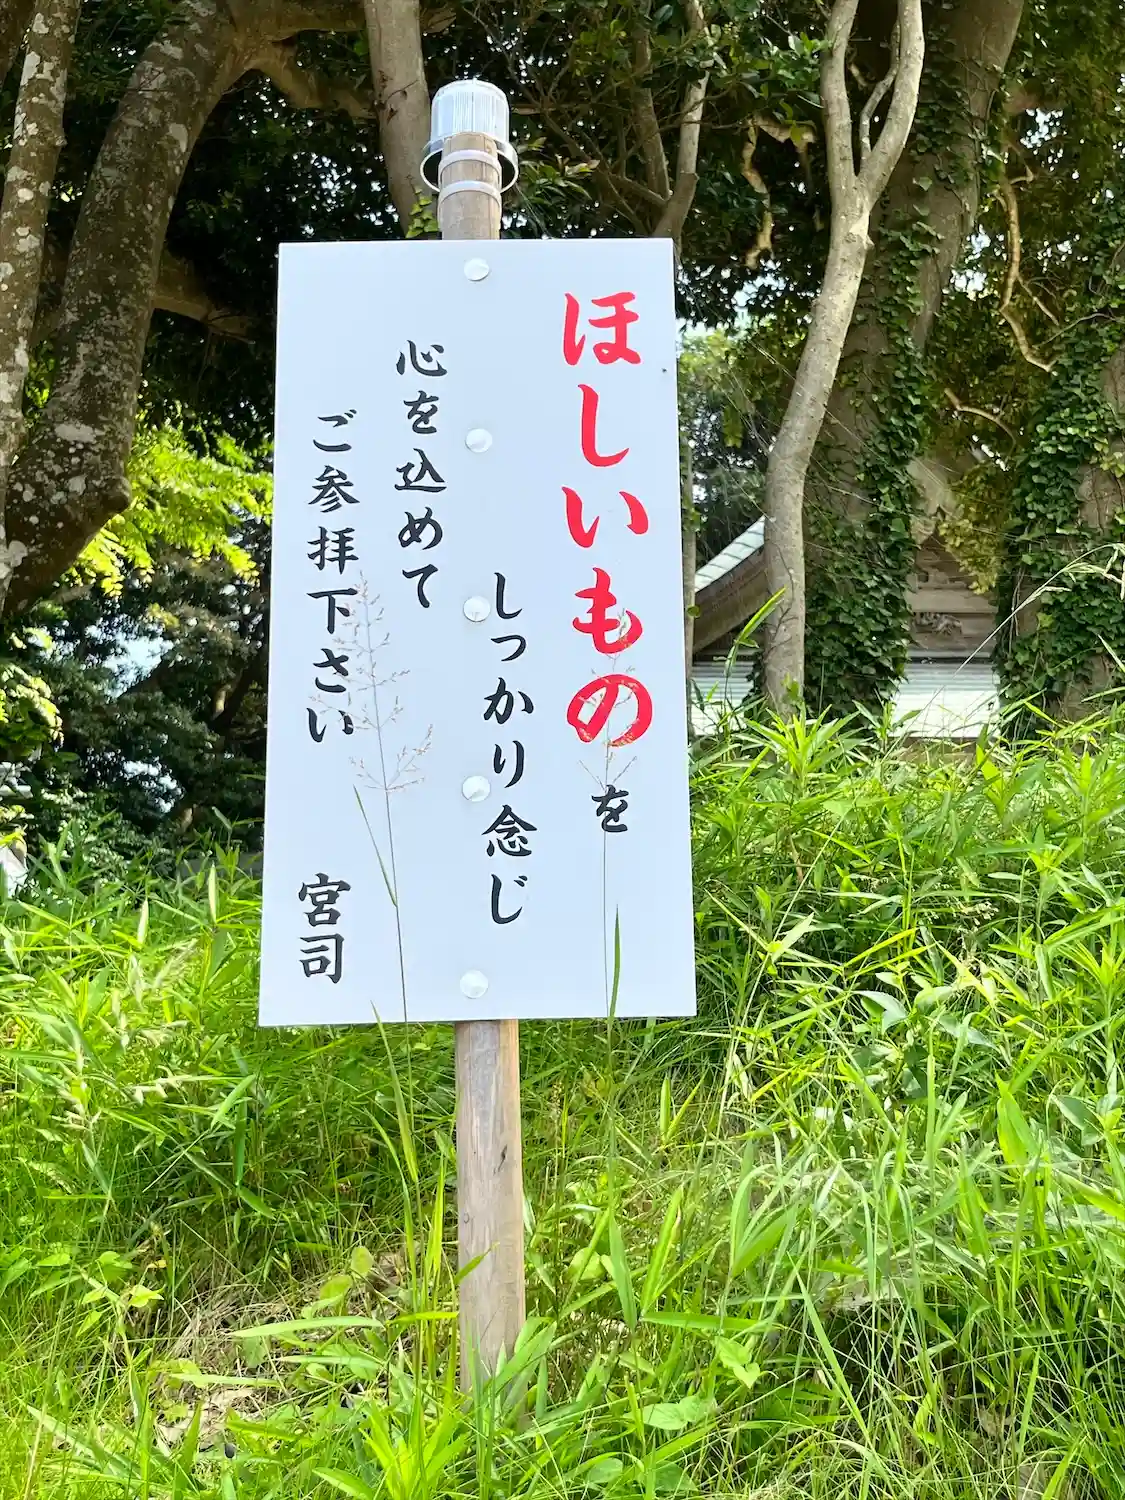 ほしいものを
しっかり念じ
心を込めて
ご参拝下さい
宮司